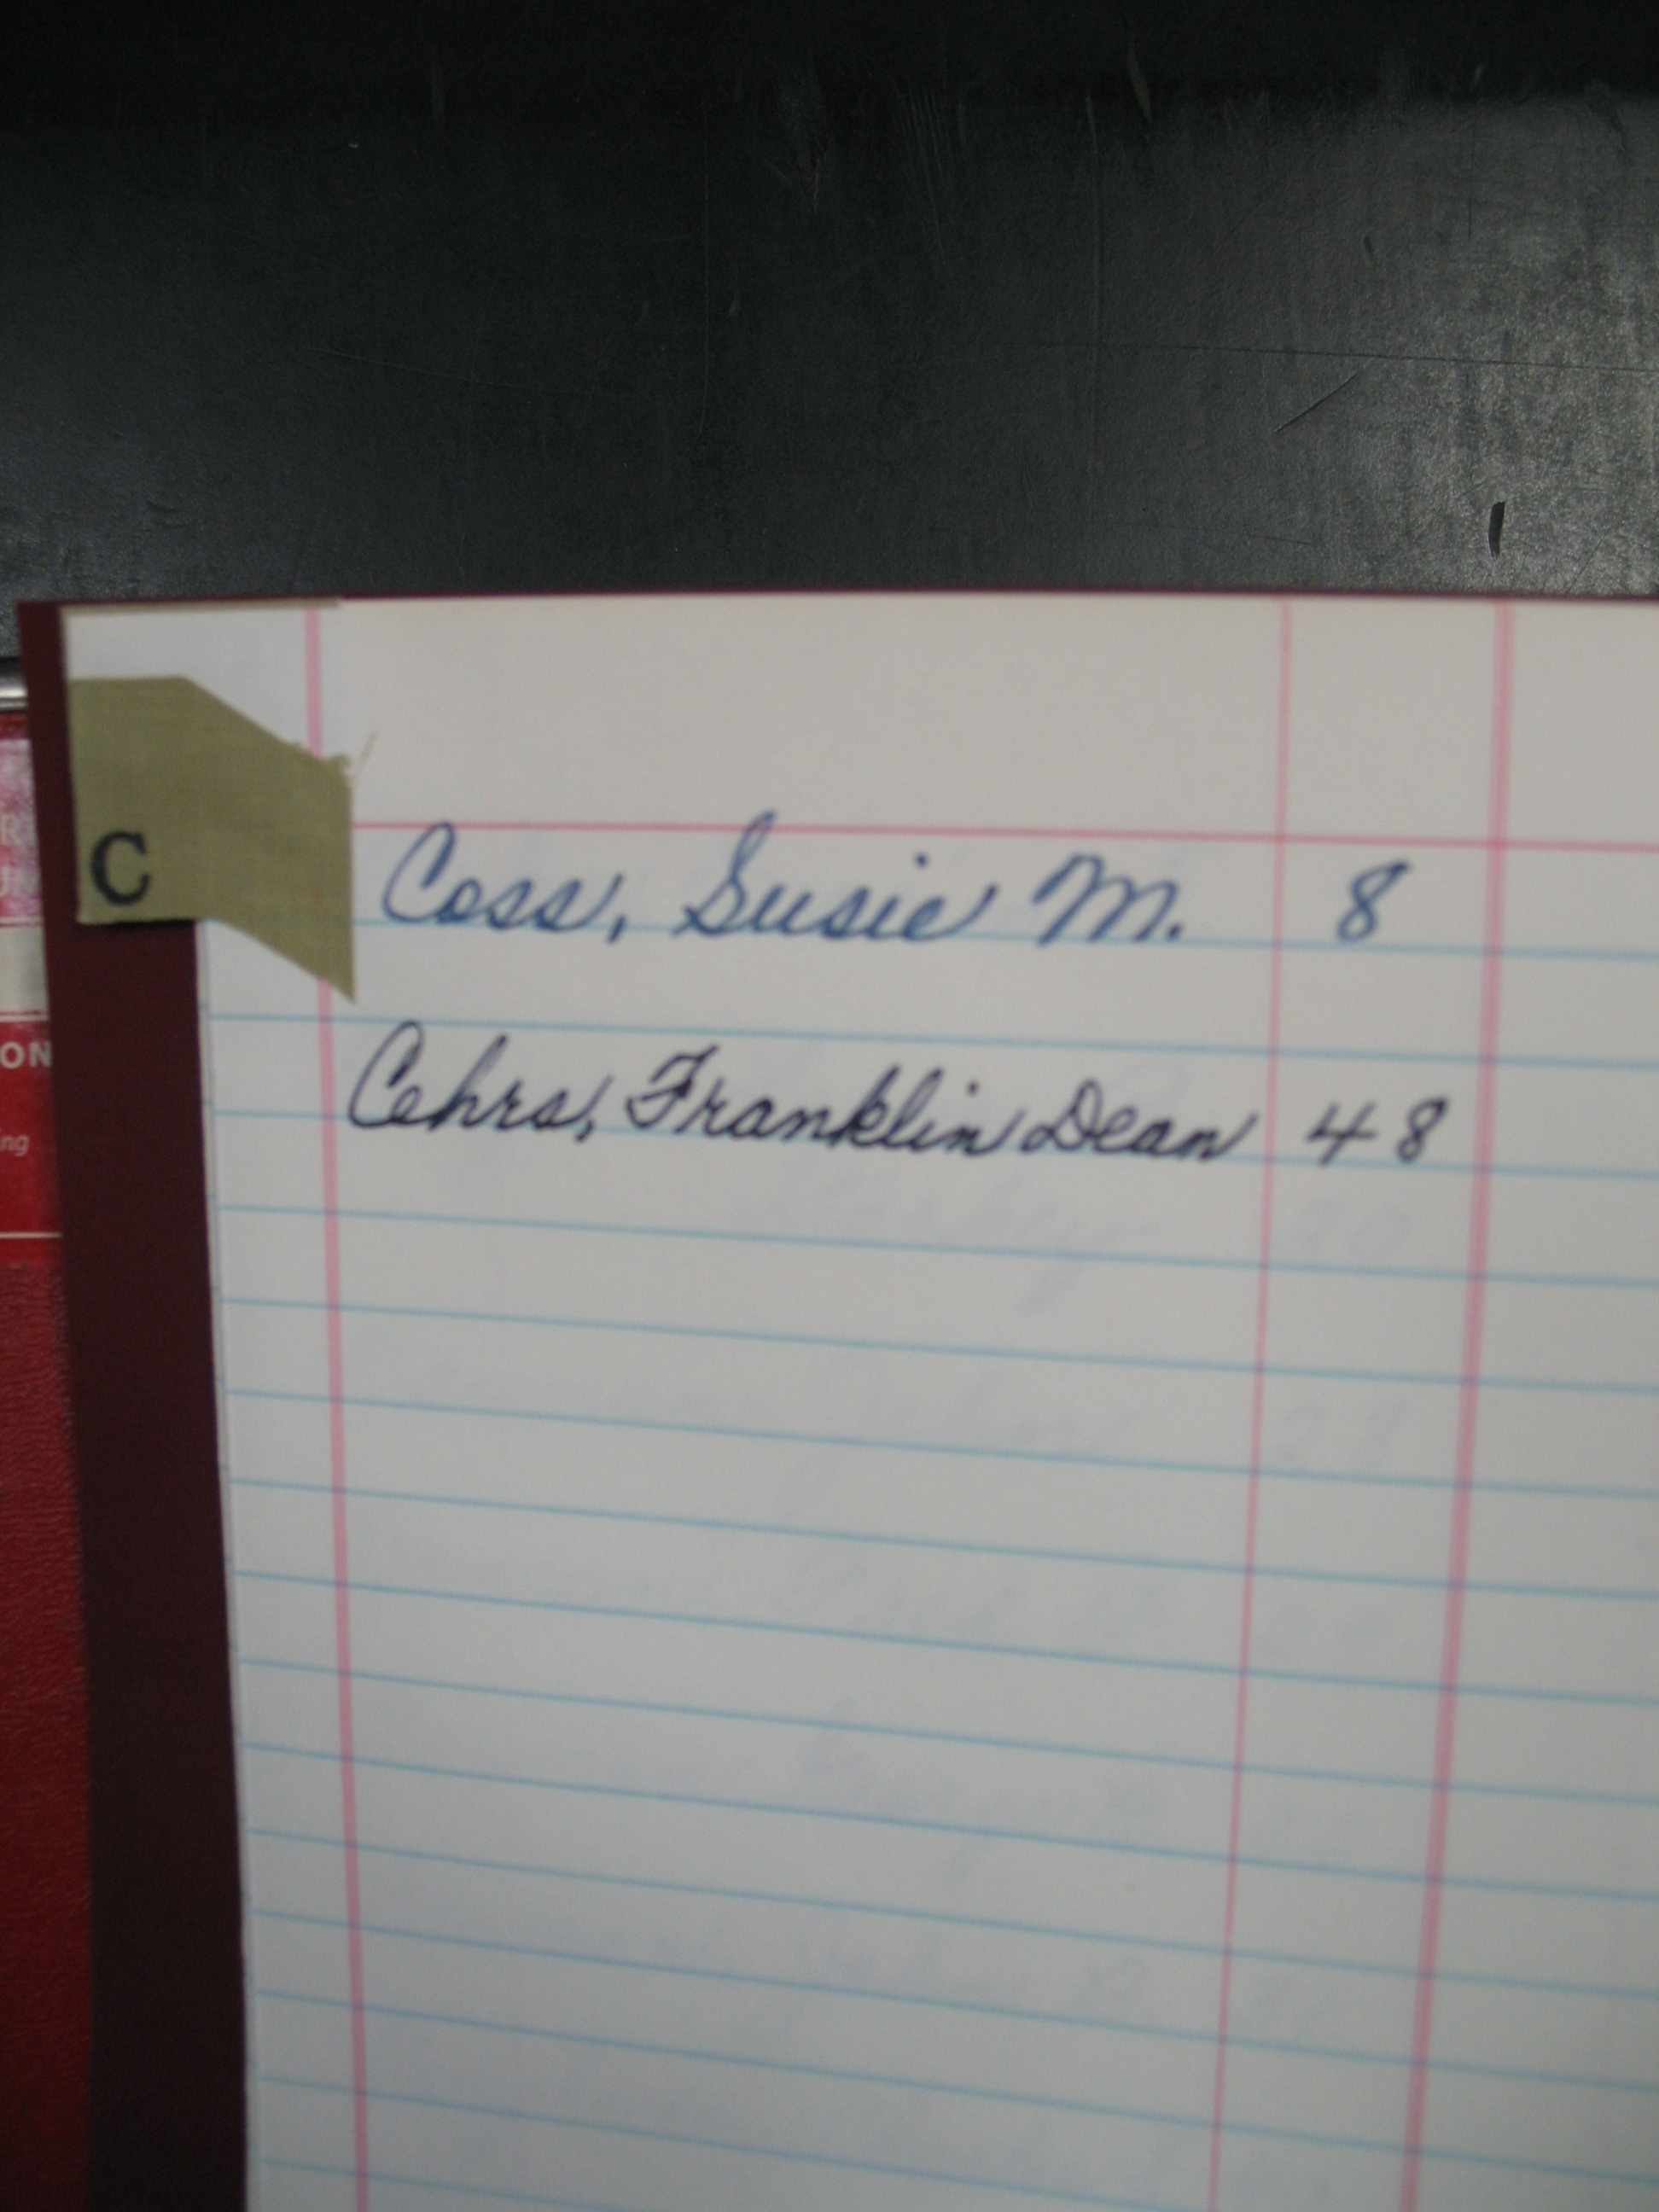 C
Coss, Susie M. 8
Cehrs, Franklin Dean 48
ON
ng